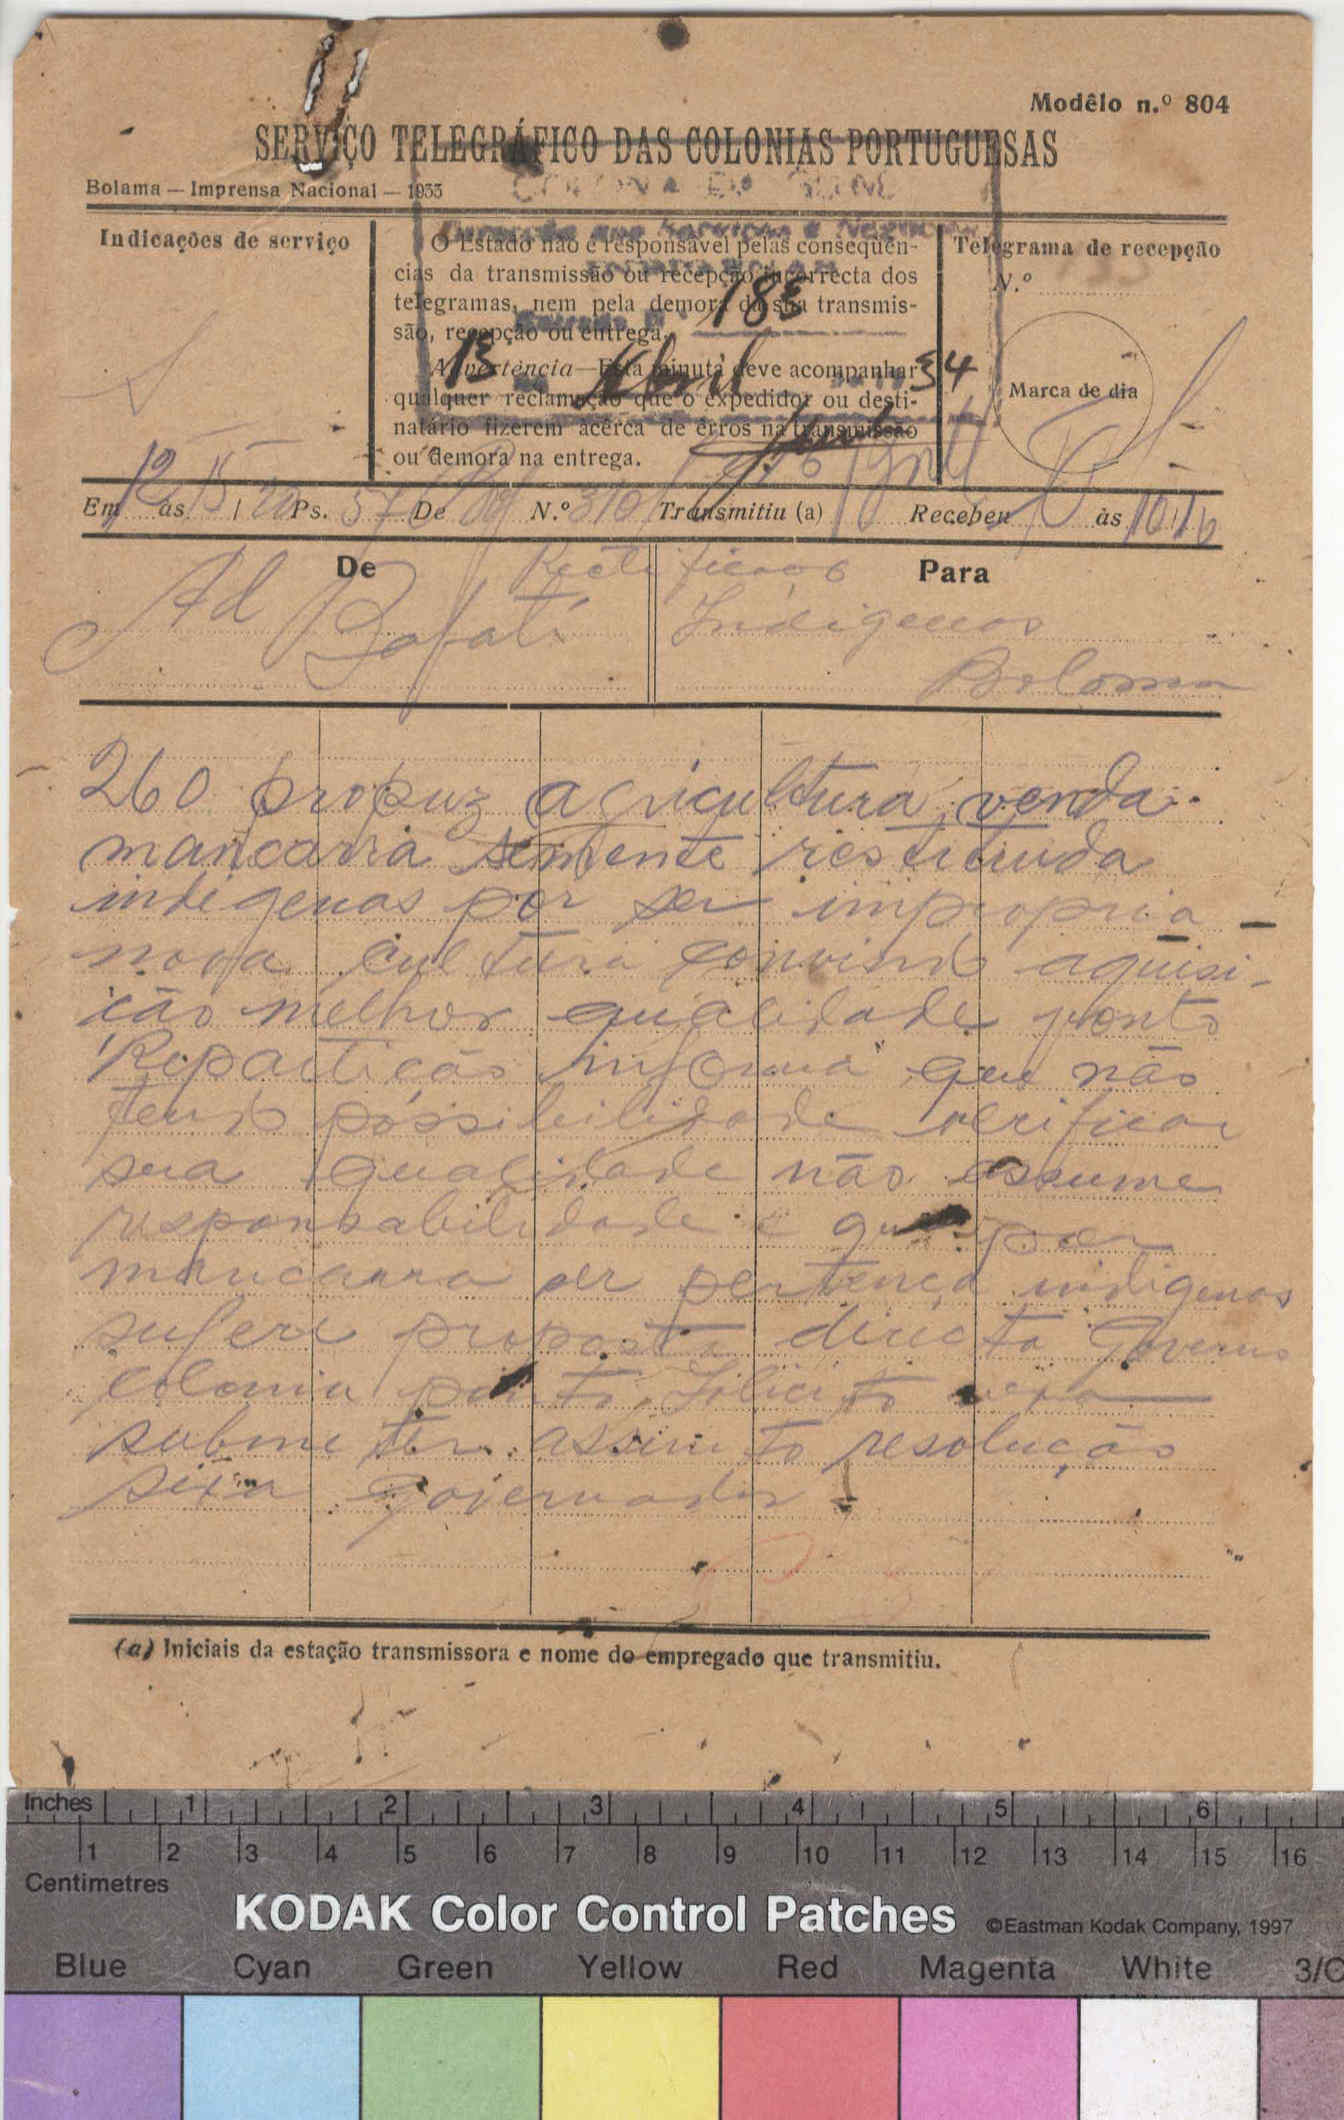 Modêlo n.º 804
SERVIÇO TELEGRÁFICO DAS COLONIAS PORTUGUESAS
Bolama — Imprensa Nacional — 1933
COLONIA DA GUINÉ
Indicações de serviço
O Estado não é responsável pelas conseqüên-
cias da transmissão ou recepção incorrecta dos
telegramas, nem pela demora da sua transmis-
são, recepção ou entrega.
Advertência—Esta minuta deve acompanhar
qualquer reclamação que o expedidor ou desti-
natário fizerem àcêrca de erros na transmissão
ou demora na entrega.
183
13 Abril 34
Telegrama de recepção
N.º
Marca de dia
Em 12 às 15 20 Ps. 57 De N.º 310 Transmitiu (a) Recebeu às 10
De
Ad Bafatá
Para
Indigenas
Bolama
260 propuz agricultura venda
mancarra semente restituida
indigenas por ser impropria
nova cultura convindo aquisi-
ção melhor qualidade ponto
Repartição informa que não
tendo possibilidade verificar
sua qualidade não assume
responsabilidade e que por
mancarra ser pertença indigenas
sugere proposta directa Governo
colonia ponto Solicito vexa
submeter assunto resolução
sexa Governador
(a) Iniciais da estação transmissora e nome do empregado que transmitiu.
Inches 1 2 3 4 5 6
1 2 3 4 5 6 7 8 9 10 11 12 13 14 15 16
Centimetres
KODAK Color Control Patches ©Eastman Kodak Company, 1997
Blue Cyan Green Yellow Red Magenta White